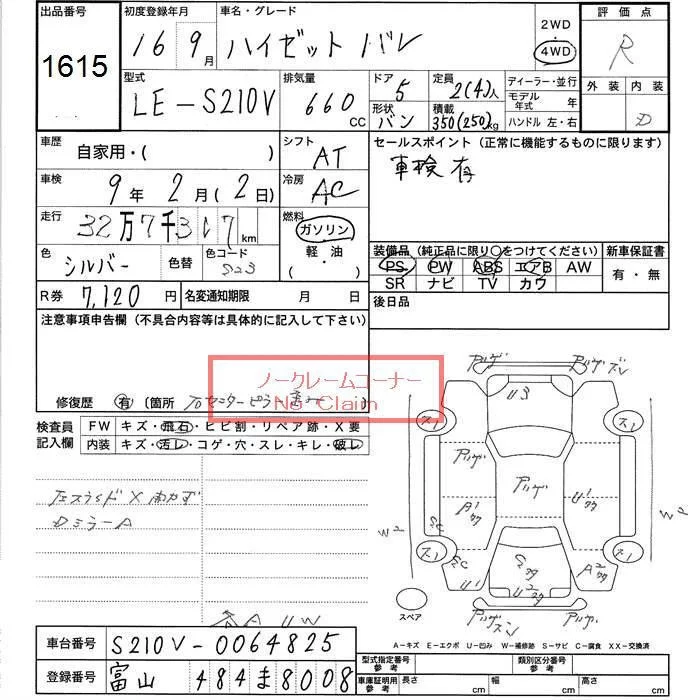 出品番号 初度登録年月 車名・グレード 2WD 評価点
1615 16 9月 ハイゼットバン 4WD R
型式 排気量 ドア 定員 ディーラー・並行 外装 内装
LE-S210V 660 CC 5 2(4)人 モデル年式 年 D
形状 積載 ハンドル 左・右
バン 350(250)kg
車歴 自家用・( ) シフト AT セールスポイント(正常に機能するものに限ります)
車検 9年2月(2日) 冷房 AC 車検有
走行 32万7千317km 燃料 ガソリン
軽・油
( )
色 シルバー 色替 色コード S23
装備品(純正品に限り○をつけてください) 新車保証書
PS PW ABS エアB AW 有・無
SR ナビ TV カワ
R券 7,120円 名変通知期限 月 日 後日品
注意事項申告欄(不具合内容等は具体的に記入して下さい)
ノークレームコーナー
No Claim
修復歴 有 〔箇所
検査員記入欄 FW キズ・飛石・ヒビ割・リペア跡・X要
内装 キズ・汚レ・コゲ・穴・スレ・キレ・破レ
DミラーA
アリゲ
U3
スペア
A-キズ E-エクボ U-凹み W-補修跡 S-サビ C-腐食 XX-交換済
車台番号 S210V-0064825
登録番号 富山 484ま8008
型式指定番号 参考 類別区分番号 参考
車庫証明用 参考 長さ cm 幅 cm 高さ cm